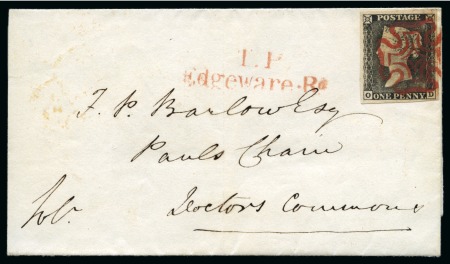 POSTAGE
T.P
Edgeware-Rd
O
ONE PENNY
F. P. Barlow Esq
Pauls Chain
Doctors Commons